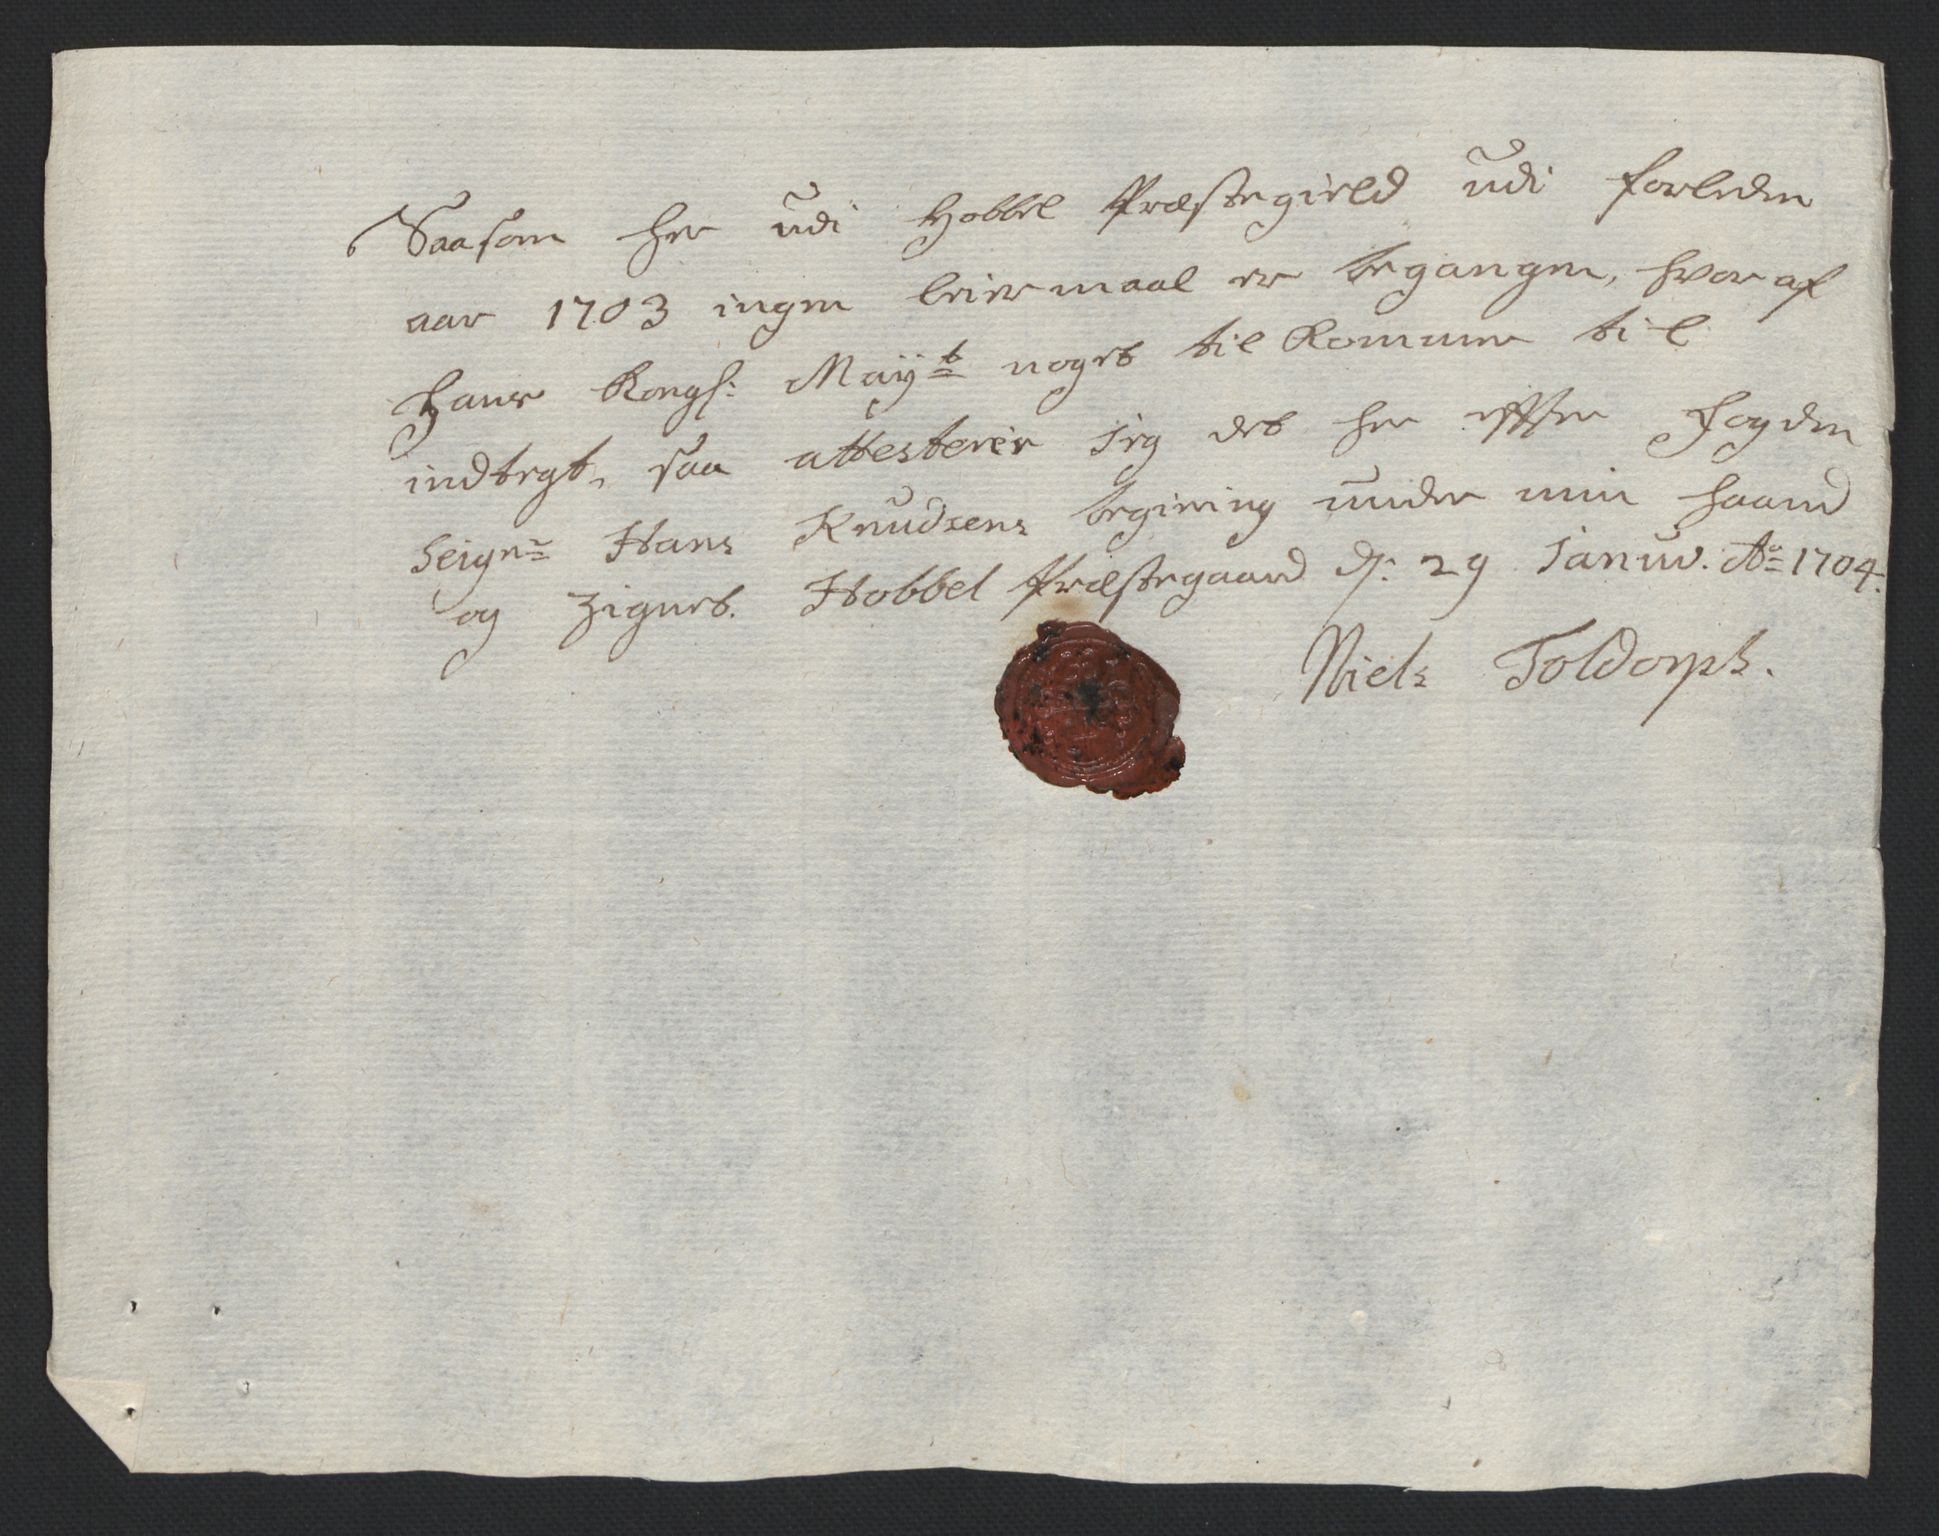 Saasom her udi Hobbel Præstegield udi forleden
aar 1703 ingen leiermaal er begangen, hvoraf
hans Kongl: Mayt noget til kommer til
indtegt, saa attesterer Jeg det her efter Fogden
Seignr Hans Knudsens begiering under min haand
og Zignet. Hobbel Præstegaard d: 29 Januv. Ao 1704.
Niels Toldorph.